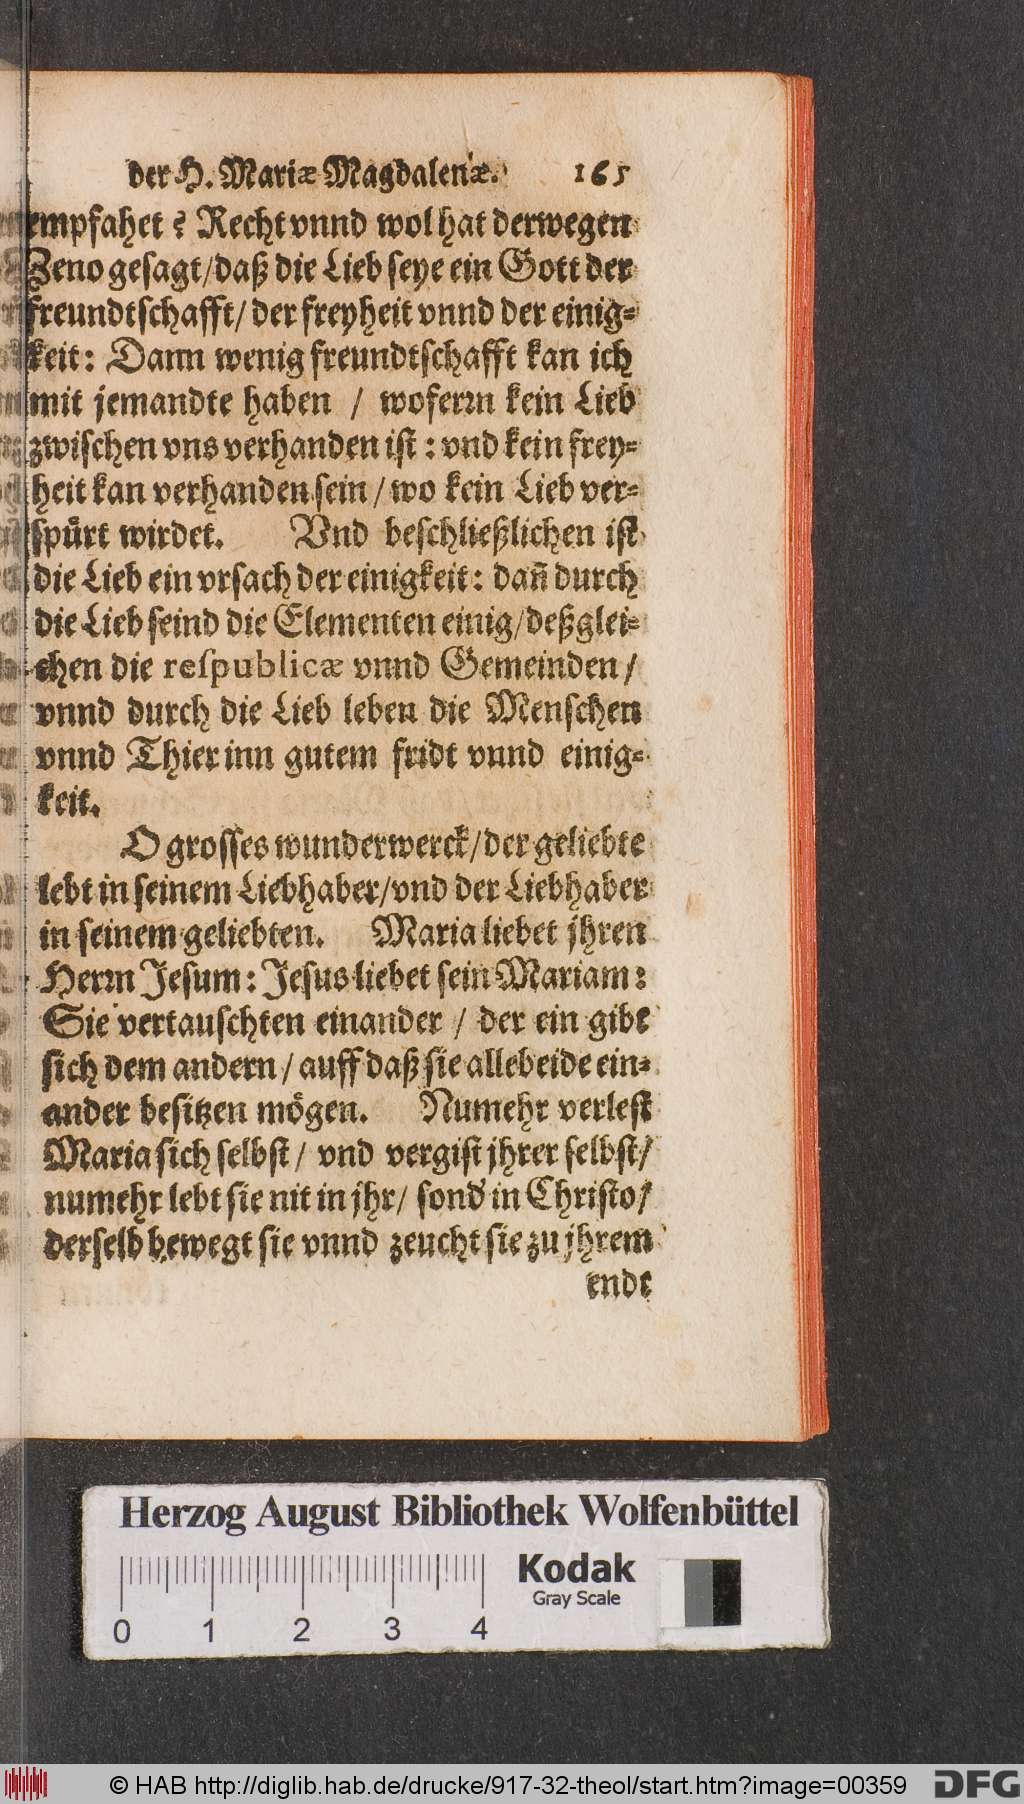 der H. Mariæ Magdalenæ. 165
empfahet? Recht vnnd wol hat derwegen
Zeno gesagt/daß die Lieb seye ein Gott der
freundtschafft/ der freyheit vnnd der einig-
keit: Dann wenig freundtschafft kan ich
mit jemandte haben / woferrn kein Lieb
zwischen vns verhanden ist: vnd kein frey-
heit kan verhanden sein / wo kein Lieb ver-
spürt wirdet. Vnd beschließlichen ist
die Lieb ein vrsach der einigkeit: dañ durch
die Lieb seind die Elementen einig/deßglei-
chen die respublicæ vnnd Gemeinden/
vnnd durch die Lieb leben die Menschen
vnnd Thier inn gutem fridt vnnd einig-
keit.
O grosses wunderwerck/der geliebte
lebt in seinem Liebhaber/vnd der Liebhaber
in seinem geliebten. Maria liebet jhren
Herrn Jesum: Jesus liebet sein Mariam:
Sie vertauschten einander / der ein gibt
sich dem andern / auff daß sie allebeide ein-
ander besitzen mögen. Numehr verlest
Maria sich selbst / vnd vergist jhrer selbst/
numehr lebt sie nit in jhr/ sond' in Christo/
derselb bewegt sie vnnd zeucht sie zu jhrem
endt
Herzog August Bibliothek Wolfenbüttel
Kodak
Gray Scale
0 1 2 3 4
© HAB http://diglib.hab.de/drucke/917-32-theol/start.htm?image=00359
DFG